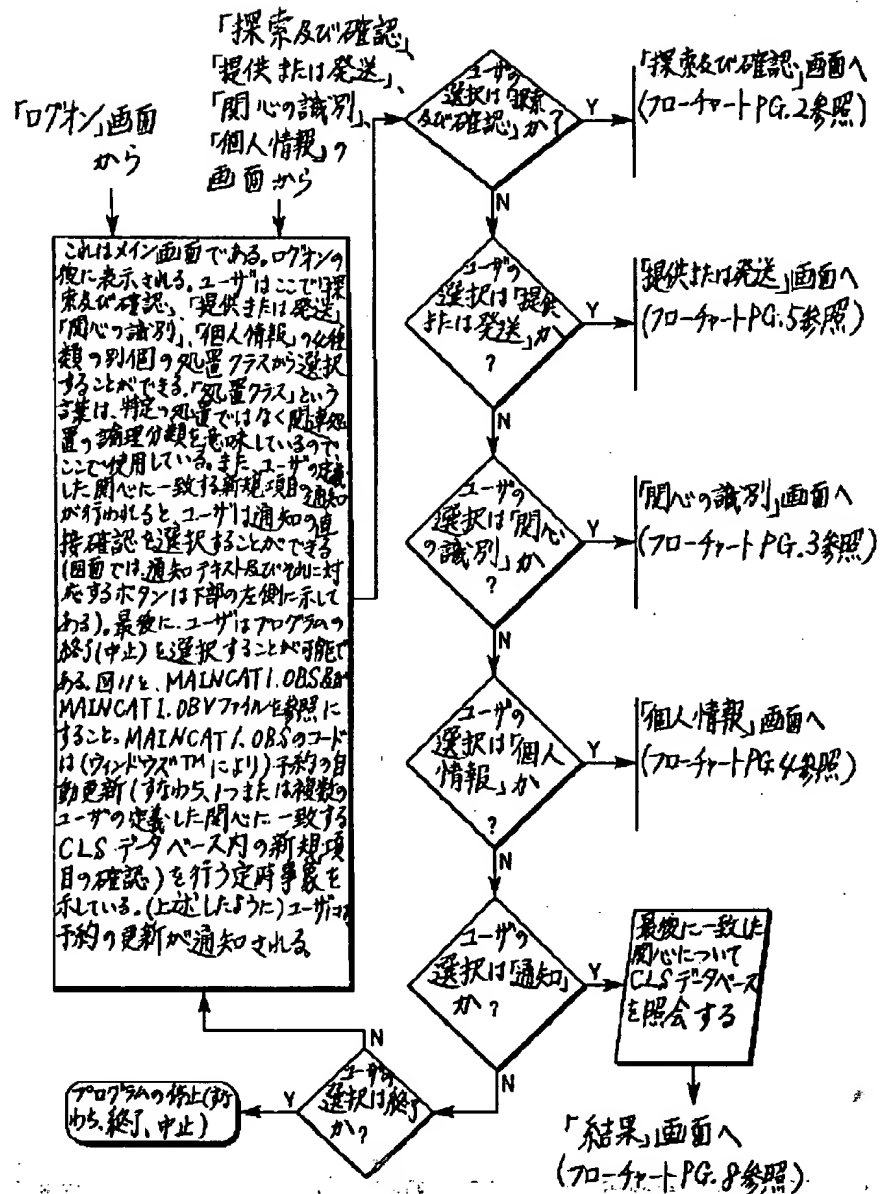 「ログオン」画面
から
「探索及び確認」、
「提供または発送」、
「関心の識別」、
「個人情報」の
画面から
これはメイン画面である。ログオンの
後に表示される。ユーザはここで「探
索及び確認」、「提供または発送」
「関心の識別」、「個人情報」の4種
類の別個の処置クラスから選択
することができる。「処置クラス」という
言葉は、特定の処置ではなく関連処
置の論理分類を意味しているので
ここで使用している。また、ユーザの定義
した関心に一致する新規項目の通知
が行われると、ユーザは通知の直
接確認を選択することができる
(図面では、通知テキスト及びそれに対
応するボタンは下部の左側に示して
ある)。最後に、ユーザはプログラムの
終了(中止)を選択することが可能で
ある。図11と、MAINCAT1.OBS及び
MAINCAT1.OBVファイルを参照に
すること。MAINCAT1.OBSのコード
は(ウィンドウズTMにより)予約の自
動更新(すなわち、1つまたは複数の
ユーザの定義した関心に一致する
CLSデータベース内の新規項
目の確認)を行う定時事象を
示している。(上述したように)ユーザには
予約の更新が通知される。
ユーザの
選択は「探索
及び確認」か?
Y
N
「探索及び確認」画面へ
(フローチャートPG.2参照)
ユーザの
選択は「提供
または発送」か
?
Y
N
「提供または発送」画面へ
(フローチャートPG.5参照)
ユーザの
選択は「関心
の識別」か
?
Y
N
「関心の識別」画面へ
(フローチャートPG.3参照)
ユーザの
選択は「個人
情報」か
?
Y
N
「個人情報」画面へ
(フローチャートPG.4参照)
ユーザの
選択は「通知」
か?
Y
N
最後に一致した
関心について
CLSデータベース
を照会する
「結果」画面へ
(フローチャートPG.8参照)
ユーザの
選択は終了
か?
N
Y
プログラムの停止(すな
わち、終了、中止)